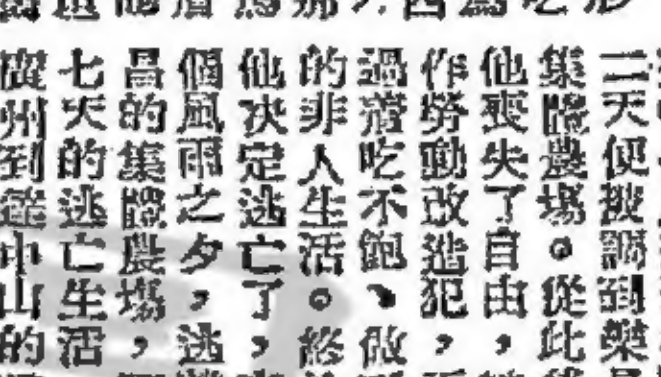 二天便被調到樂
集體農場。從此
他喪失了自由，
作勞動改造犯，
過着吃不飽、做
的非人生活。終
他決定逃亡了，
個風雨之夕，逃
昌的集體農場，
七天的逃亡生活
廣州到達中山的